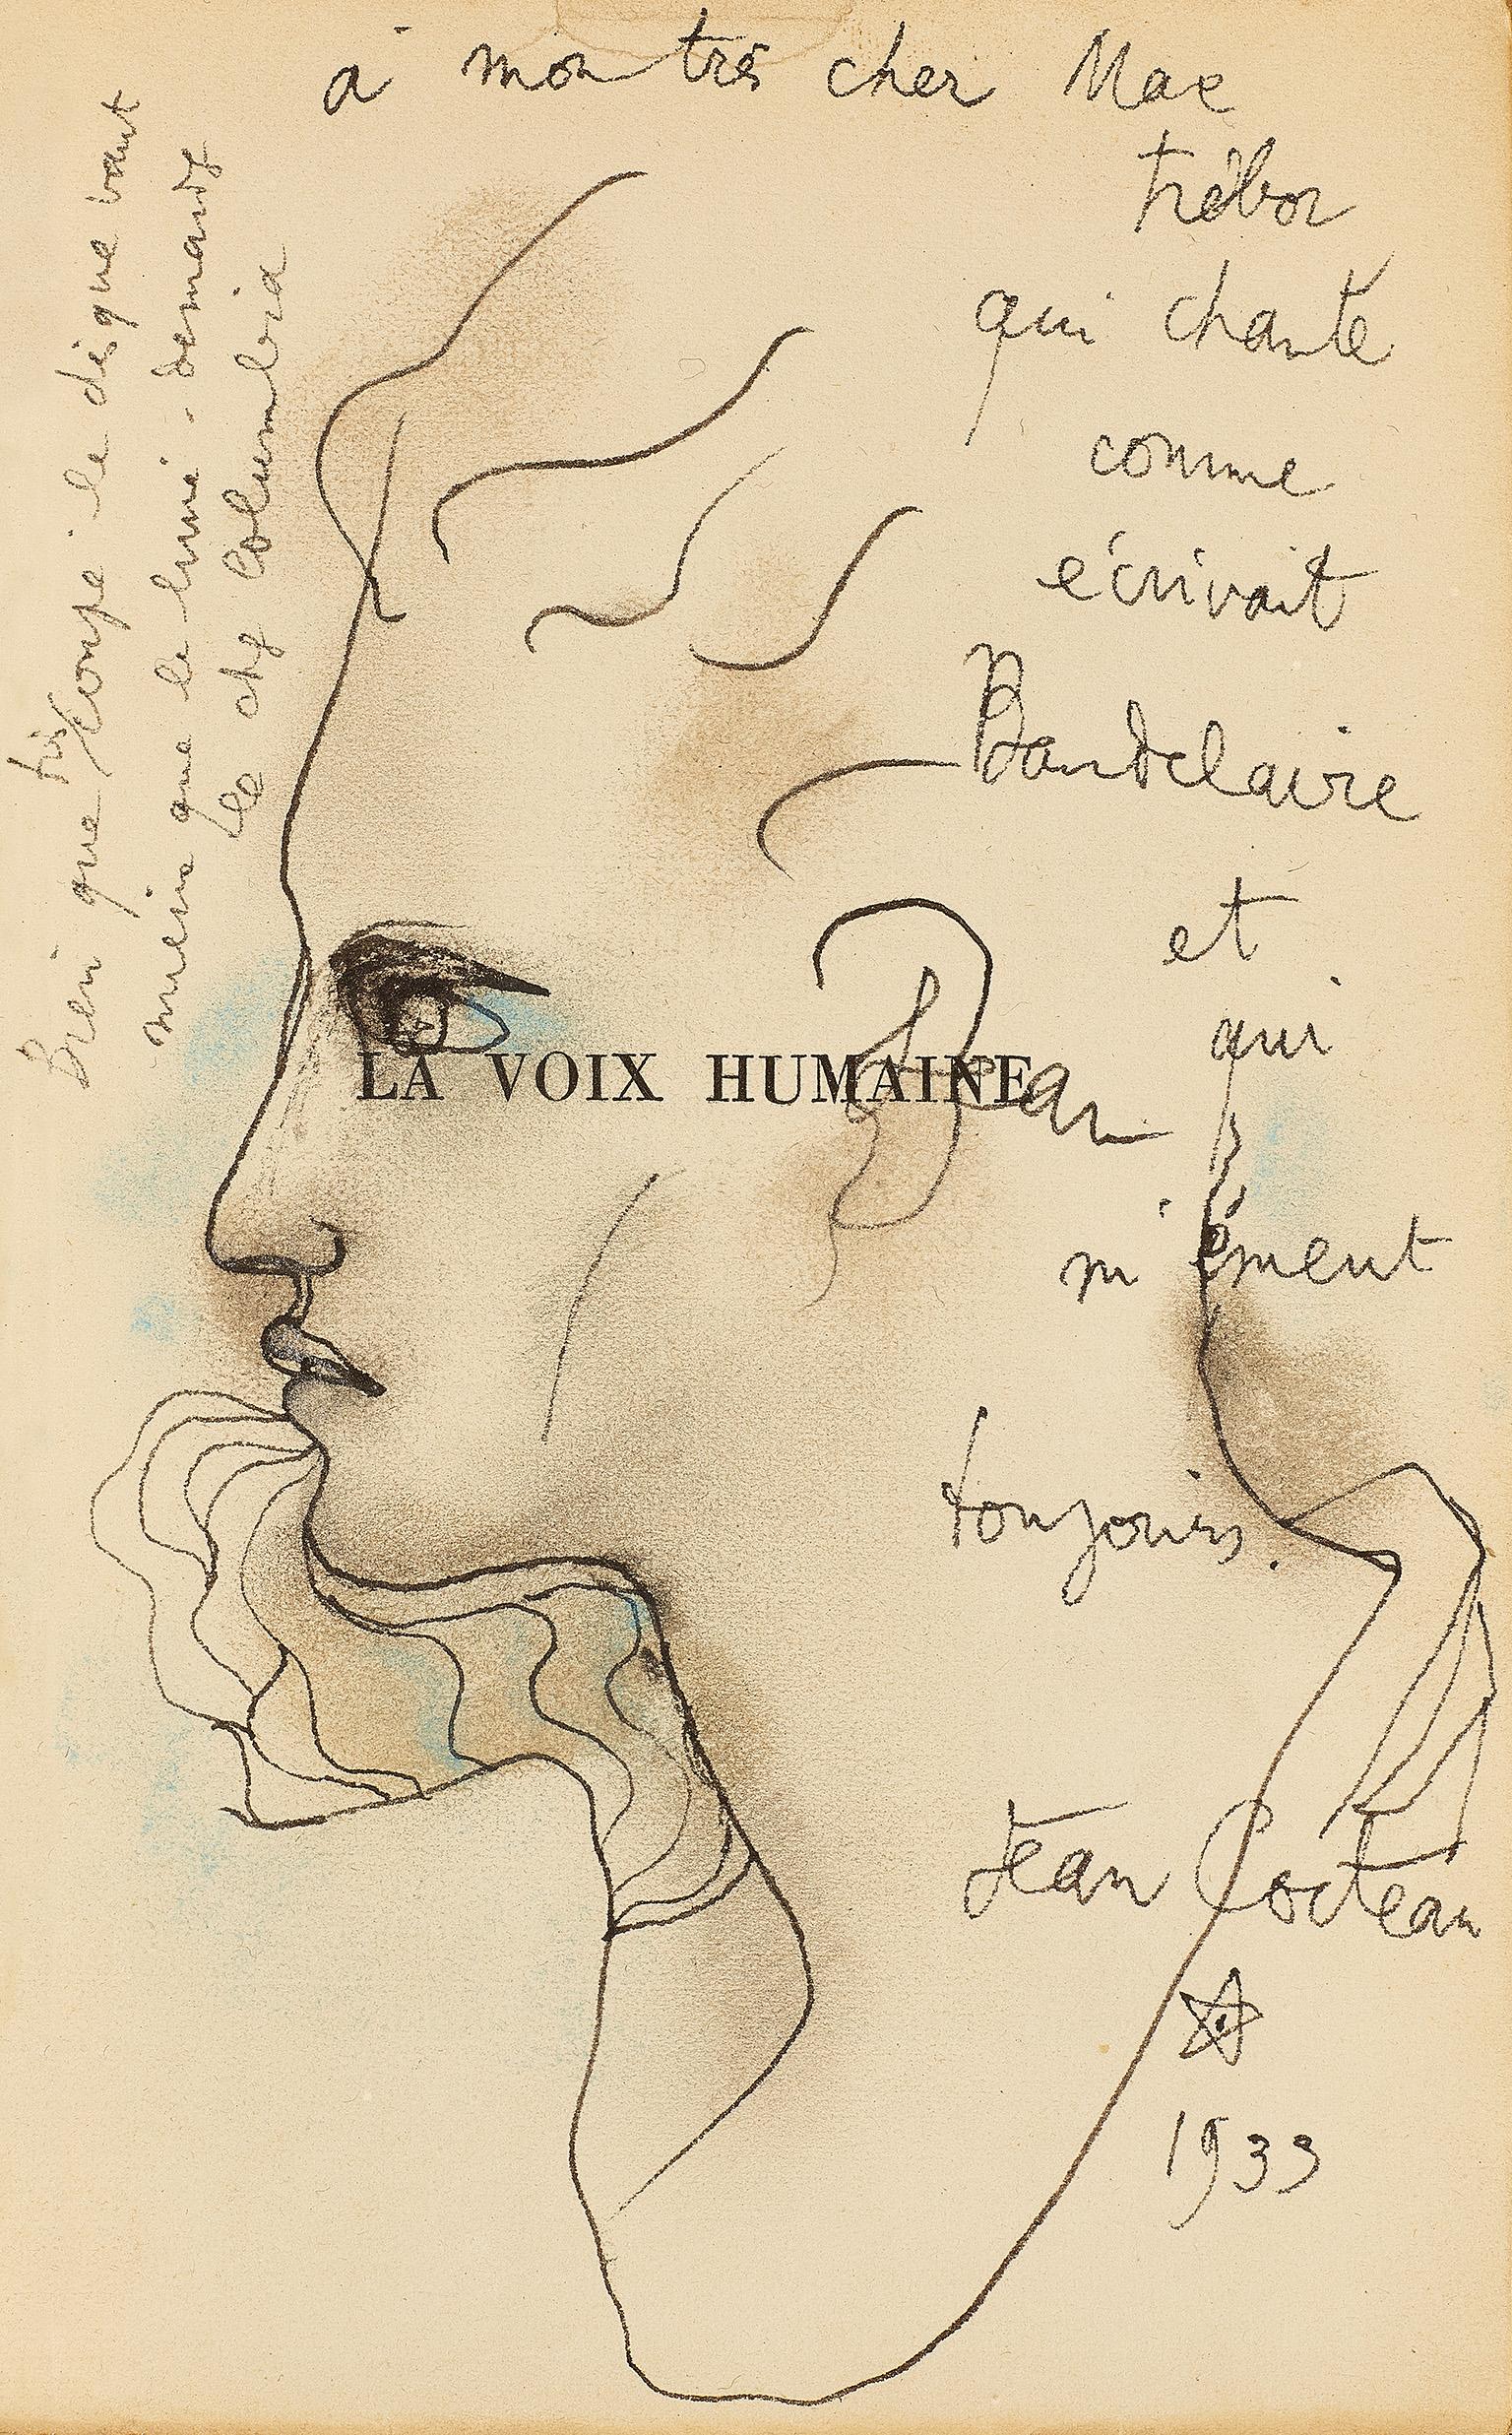 à mon très cher Max
trébor
qui chante
comme
écrivait
Baudelaire
et
qui
LA VOIX HUMAINE
Jean
m'émeut
toujours.
Jean Cocteau
1933
Bien que très coupé le disque vaut
mieux que le livre - demande
le chez Columbia